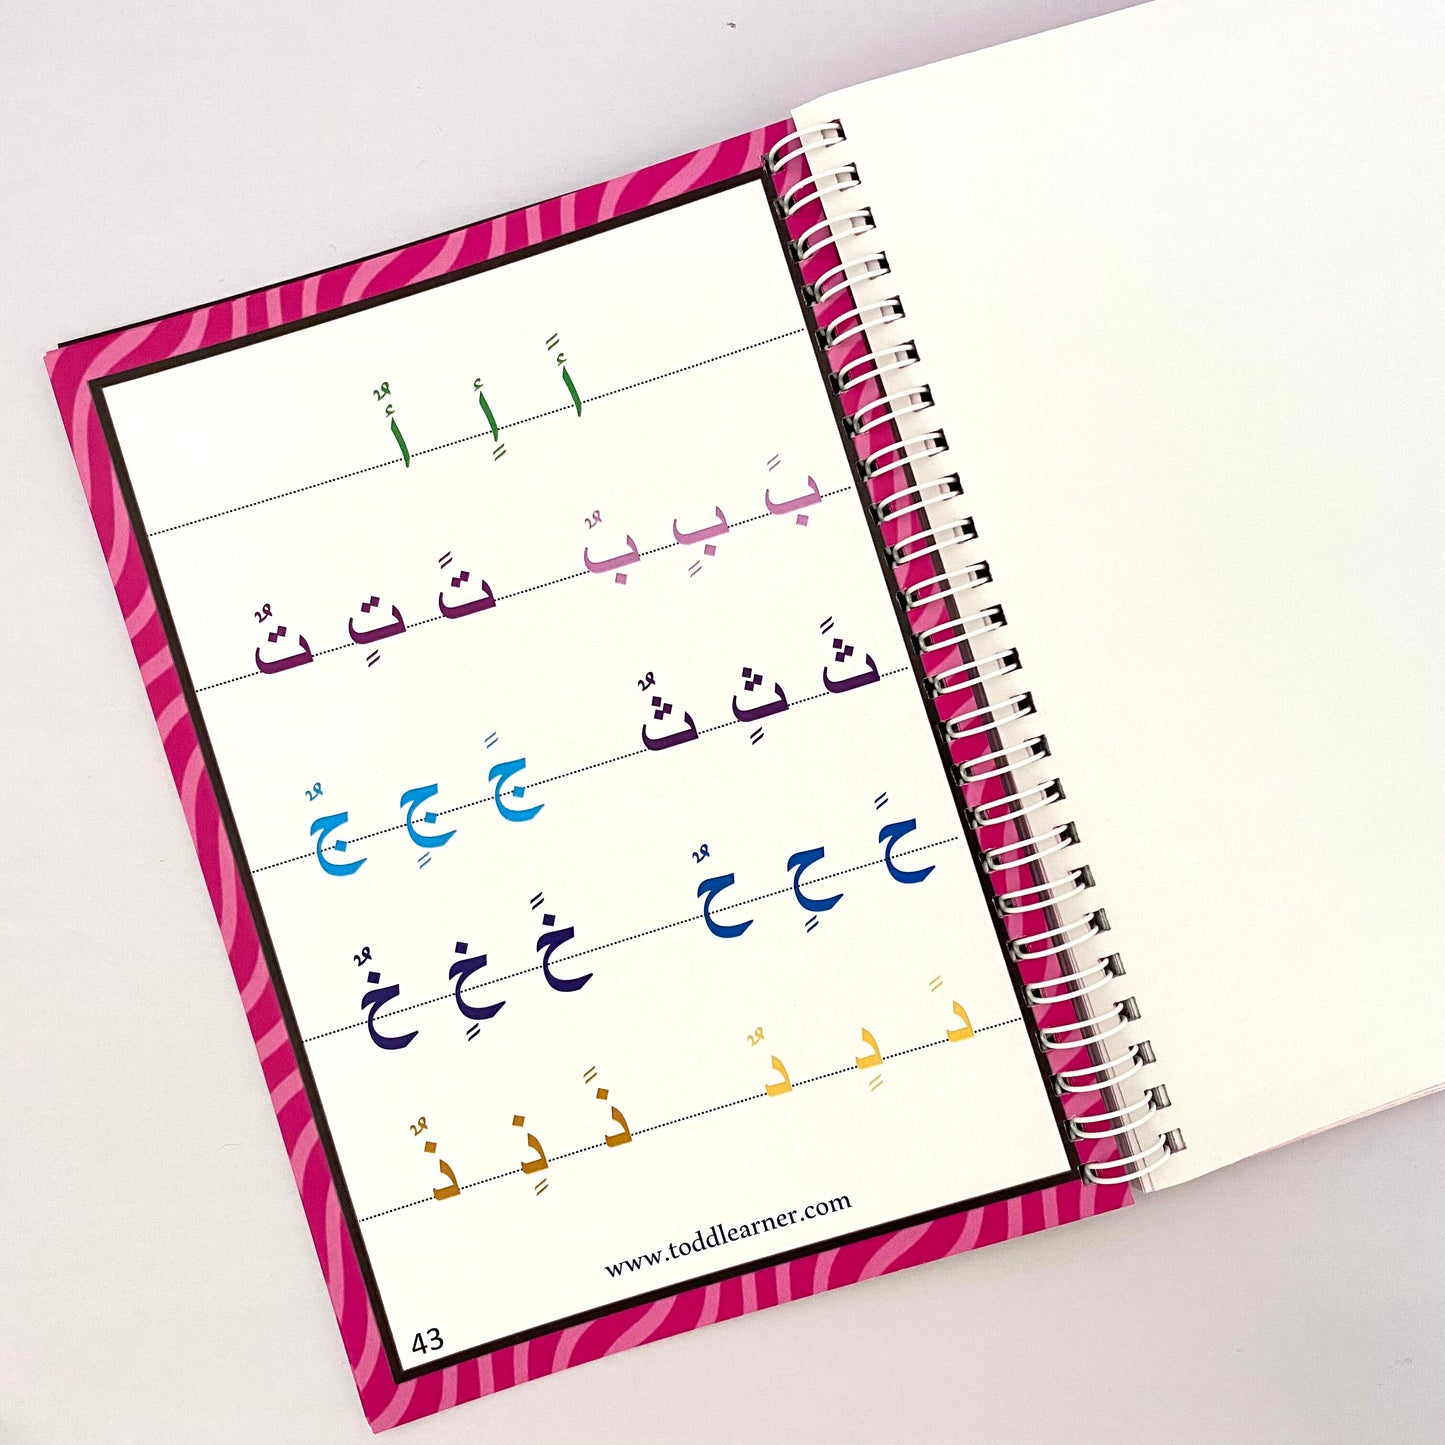 أً أٍ أٌ
بً بٍ بٌ تً تٍ تٌ
ثً ثٍ ثٌ جً جٍ جٌ
حً حٍ حٌ خً خٍ خٌ
دً دٍ دٌ ذً ذٍ ذٌ
www.toddlearner.com
43